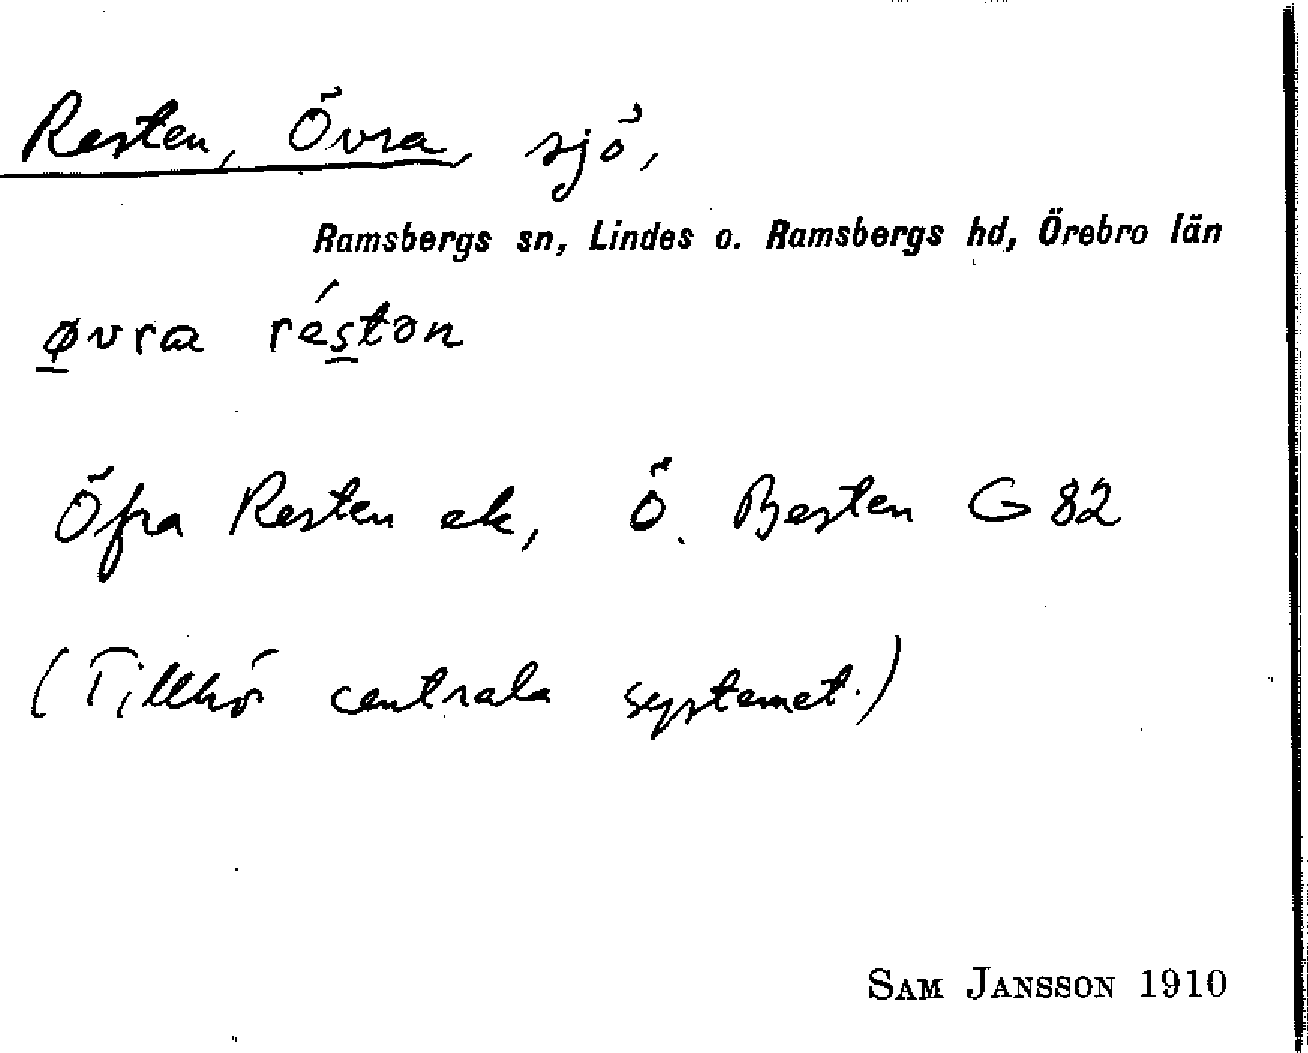 Resten, Övra, sjö,
Ramsbergs sn, Lindes o. Ramsbergs hd, Örebro län
øvra réstən
Öfra Resten ek, Ö. Besten G 82
(Tillhör centrala systemet.)
SAM JANSSON 1910